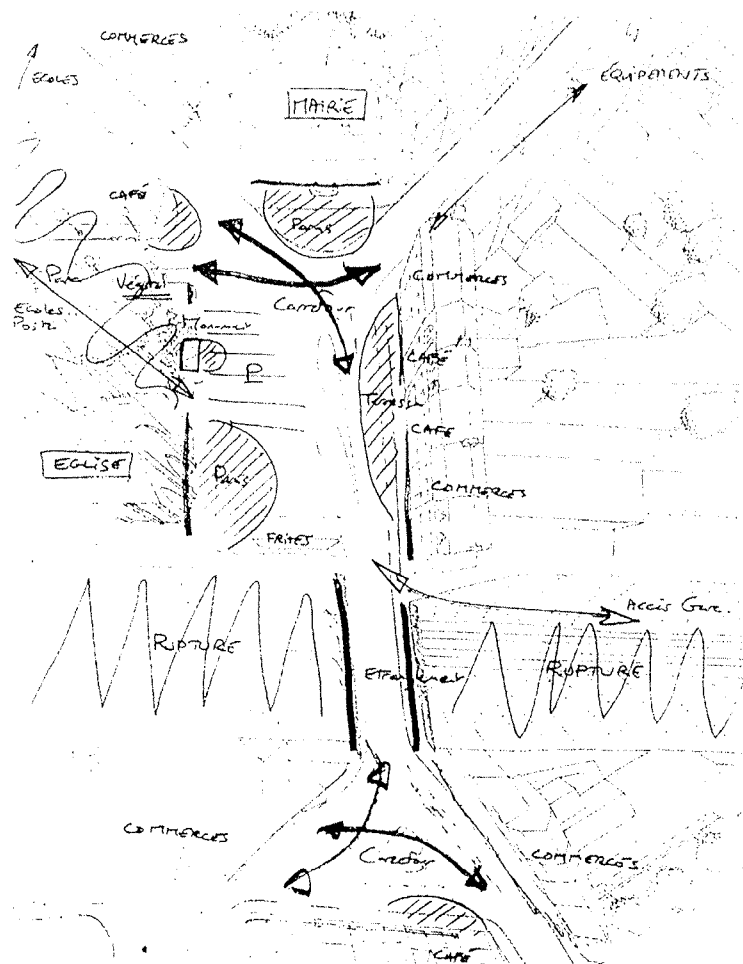 COMMERCES
ECOLES
EQUIPEMENTS
MAIRIE
CAFÉ
Parvis
Parc
Végétal
COMMERCES
Ecoles
Carrefour
Monument
P
CAFÉ
Terrasse
CAFÉ
EGLISE
Parvis
COMMERCES
FRITES
Accès Gare.
RUPTURE
Etranglement
RUPTURE
COMMERCES
Carrefour
COMMERCES
CAFÉ